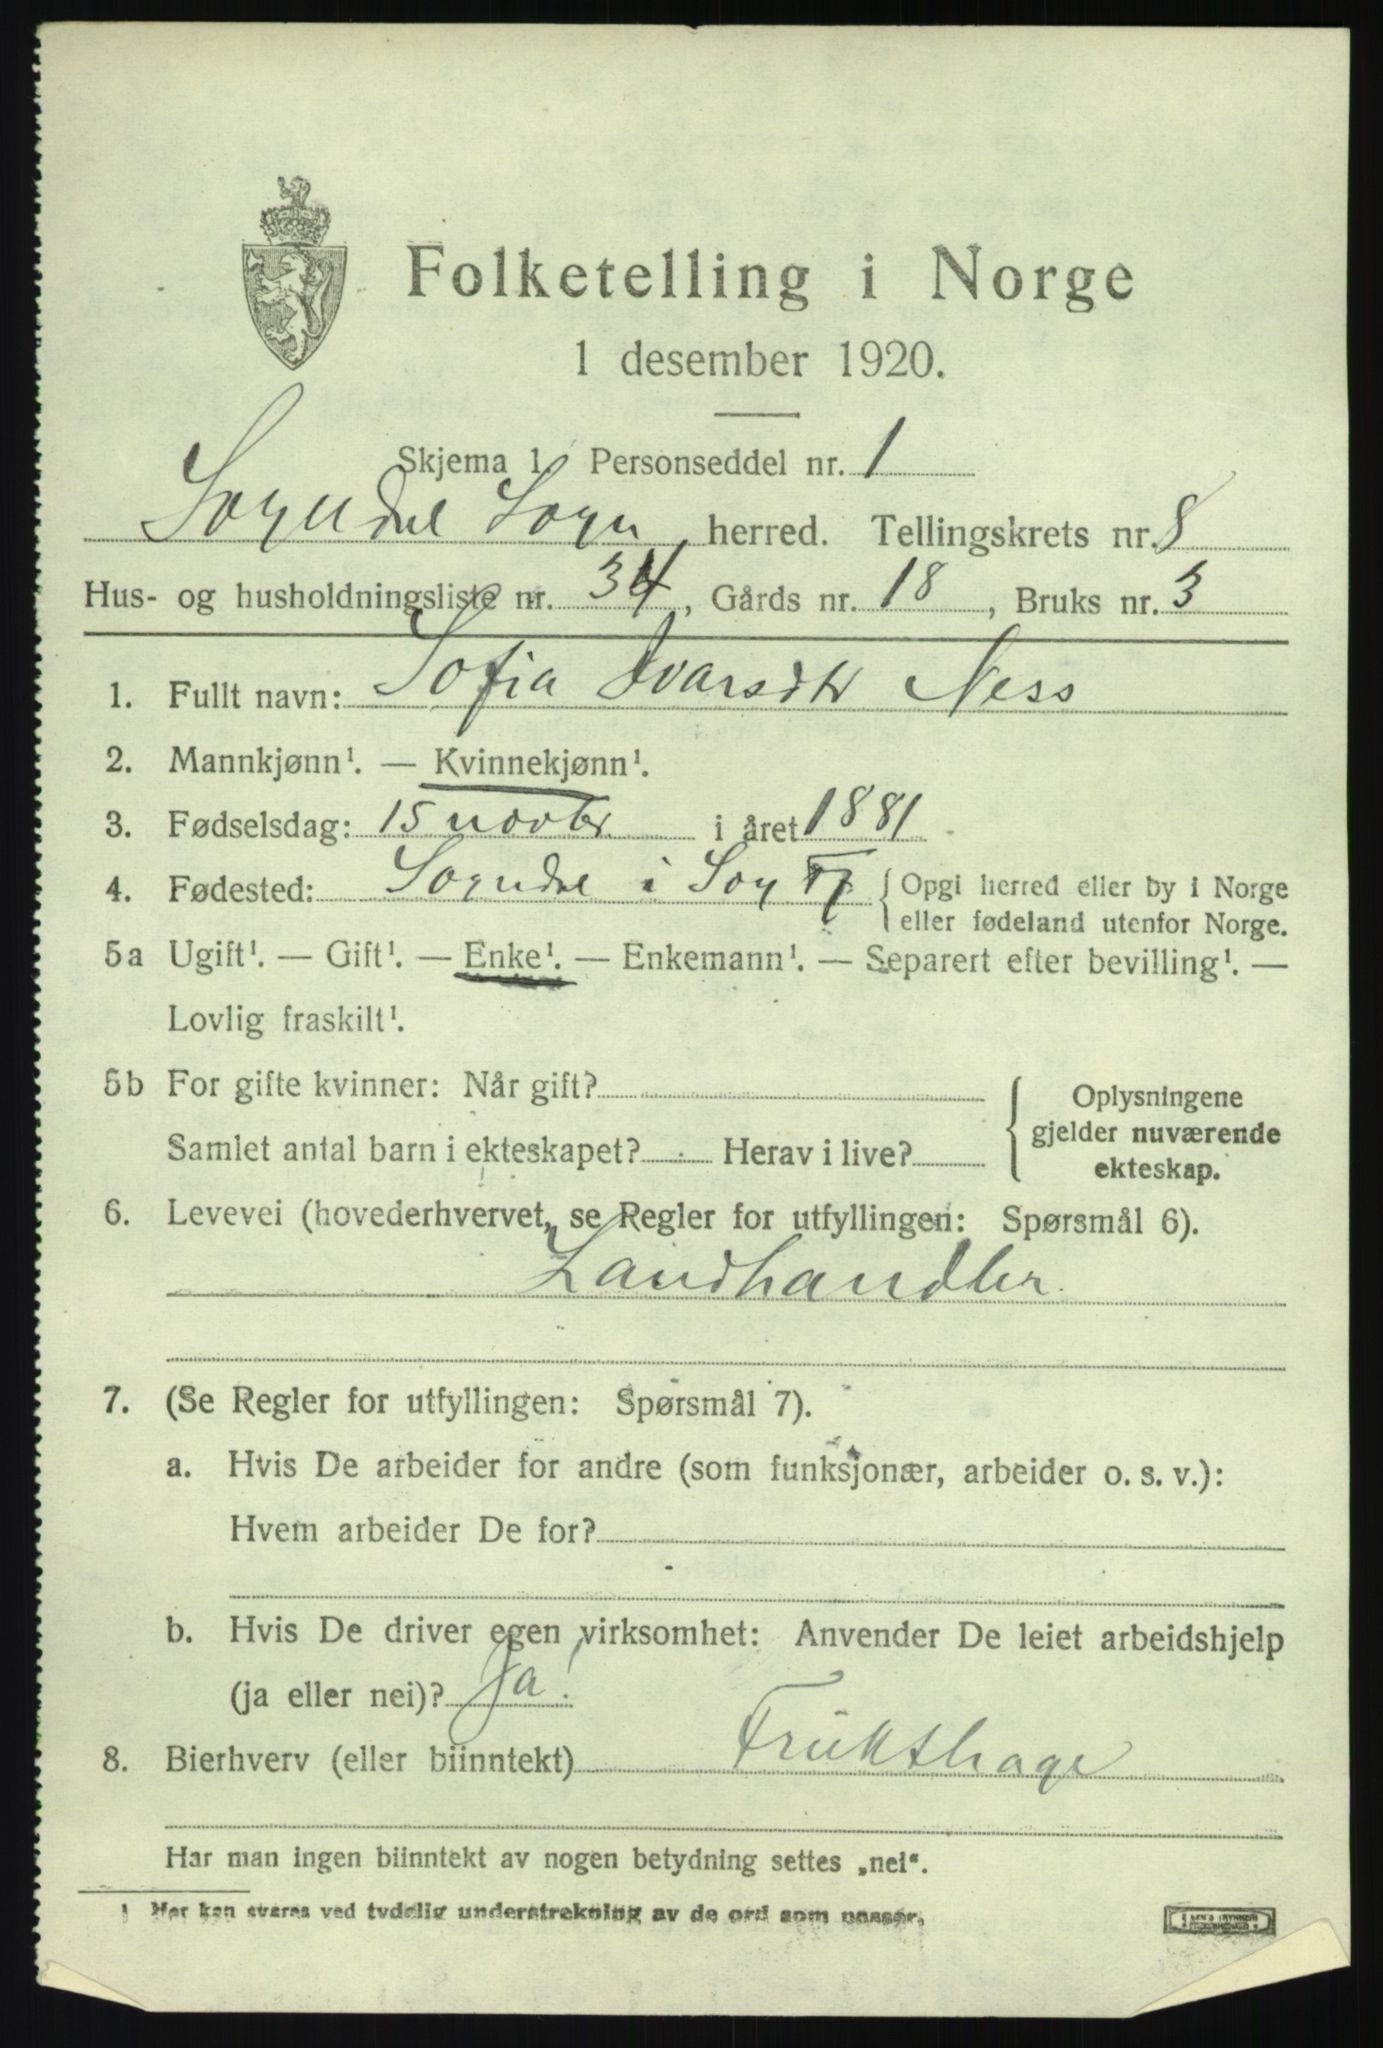 Folketelling i Norge
1 desember 1920.
Skjema 1. Personseddel nr. 1
Sogndal Sogn herred. Tellingskrets nr. 8
Hus- og husholdningsliste nr. 34, Gårds nr. 18, Bruks nr. 3
1. Fullt navn: Sofia Ivarsdtr Ness
2. Mannkjønn¹. — Kvinnekjønn¹.
3. Fødselsdag: 15 novbr i året 1881
4. Fødested: Sogndal i Sogn { Opgi herred eller by i Norge
eller fødeland utenfor Norge.
5a Ugift¹. — Gift¹. — Enke¹. — Enkemann¹. — Separert efter bevilling¹. —
Lovlig fraskilt¹.
5b For gifte kvinner: Når gift? { Oplysningene
gjelder nuværende
Samlet antal barn i ekteskapet? Herav i live?
ekteskap.
6. Levevei (hovederhvervet, se Regler for utfyllingen: Spørsmål 6).
Landhandler
7. (Se Regler for utfyllingen: Spørsmål 7).
a. Hvis De arbeider for andre (som funksjonær, arbeider o. s. v.):
Hvem arbeider De for?
b. Hvis De driver egen virksomhet: Anvender De leiet arbeidshjelp
(ja eller nei)? Ja!
8. Bierhverv (eller biinntekt) Frukthage
Har man ingen biinntekt av nogen betydning settes „nei“.
¹ Her kan svares ved tydelig understrekning av de ord som passer.